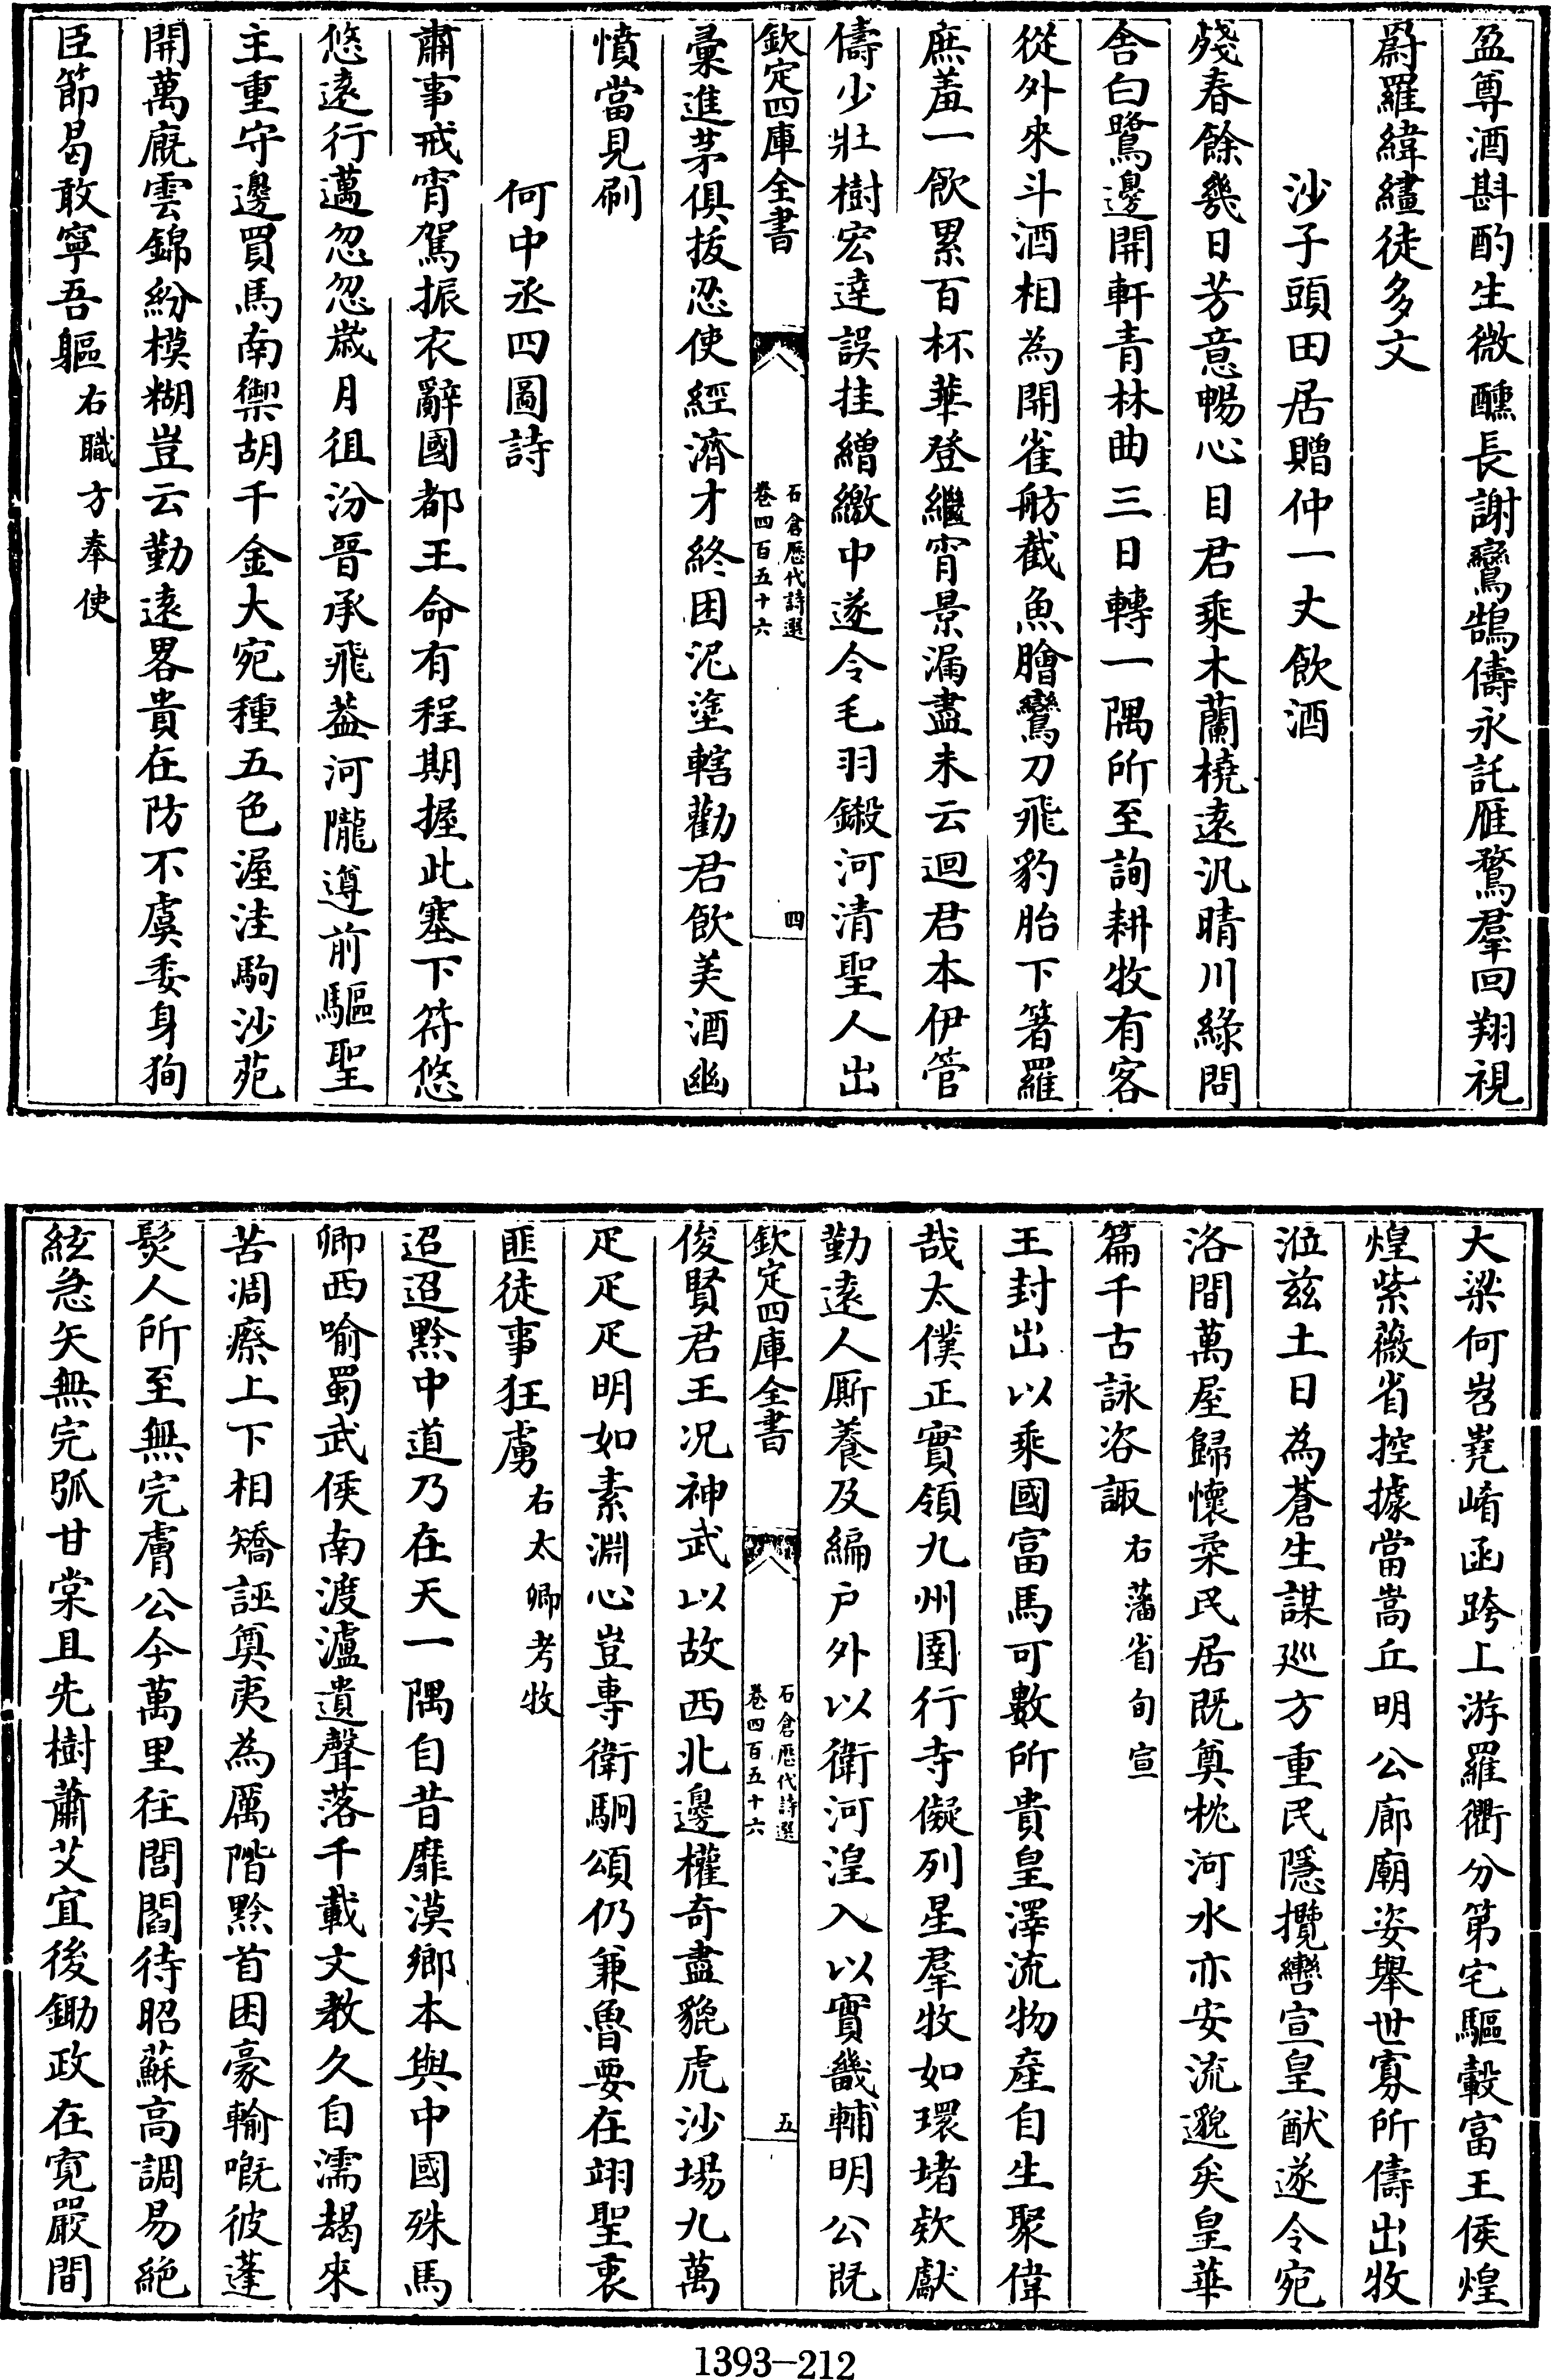 盈尊酒斟酌生微醺長謝鸞鵠儔永託雁鶩羣回翔視
罻羅緯繣徒多文
沙子頭田居贈仲一丈飲酒
殘春餘幾日芳意暢心目君乘木蘭橈遠汎晴川綠問
舍白鷺邊開軒青林曲三日轉一隅所至詢耕牧有客
從外來斗酒相為開雀舫截魚膾鸞刀飛豹胎下箸羅
庶羞一飲累百杯華登繼宵景漏盡未云迴君本伊管
儔少壯樹宏達誤挂繒繳中遂令毛羽鎩河清聖人出
欽定四庫全書
石倉歷代詩選
卷四百五十六
四
彙進茅俱拔忍使經濟才終困泥塗轄勸君飲美酒幽
憤當見刷
何中丞四圖詩
肅事戒宵駕振衣辭國都王命有程期握此塞下符悠
悠遠行邁忽忽歲月徂汾晉承飛葢河隴遵前驅聖
主重守邊買馬南禦胡千金大宛種五色渥洼駒沙苑
開萬廐雲錦紛模糊豈云勤遠畧貴在防不虞委身狥
臣節曷敢寧吾軀右職方奉使
大梁何岧嶤崤函跨上游羅衢分第宅驅轂富王侯煌
煌紫薇省控據當嵩丘明公廊廟姿舉世寡所儔出牧
涖兹土日為蒼生謀廵方重民隱攬轡宣皇猷遂令宛
洛間萬屋歸懷柔民居既奠枕河水亦安流邈矣皇華
篇千古詠洛諏右藩省旬宣
王封出以乘國富馬可數所貴皇澤流物產自生聚偉
哉太僕正實領九州圉行寺儗列星羣牧如環堵欸獻
勤遠人厮養及編户外以衛河湟入以實畿輔明公既
欽定四庫全書
石倉歷代詩選
卷四百五十六
五
俊賢君王况神武以故西北邊權奇盡貔虎沙場九萬
疋疋疋明如素淵心豈專衛駉頌仍兼魯要在翊聖衷
匪徒事狂虜右太卿考牧
迢迢黔中道乃在天一隅自昔靡漠鄉本與中國殊馬
卿西喻蜀武侯南渡瀘遺聲落千載文教久自濡朅來
苦凋瘵上下相矯誣奠夷為厲階黔首困豪輸嘅彼蓬
髮人所至無完膚公今萬里徃閭閻待昭蘇高調易絶
絃急矢無完弧甘棠且先樹蕭艾宜後鋤政在寛嚴間
1393—212